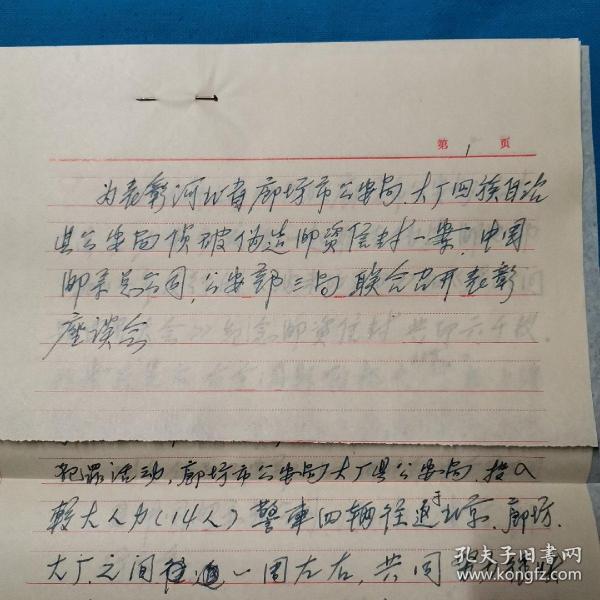 第1页
为表彰河北省廊坊市公安局、大厂回族自治
县公安局侦破伪造邮资信封一案，中国
邮票总公司，公安部三局联合召开表彰
座谈会
犯罪活动，廊坊市公安局大厂县公安局，投入
较大人力（14人）警车四辆往返于北京、廊坊、
大厂之间一周左右，共同
孔夫子旧书网
www.kongfz.com